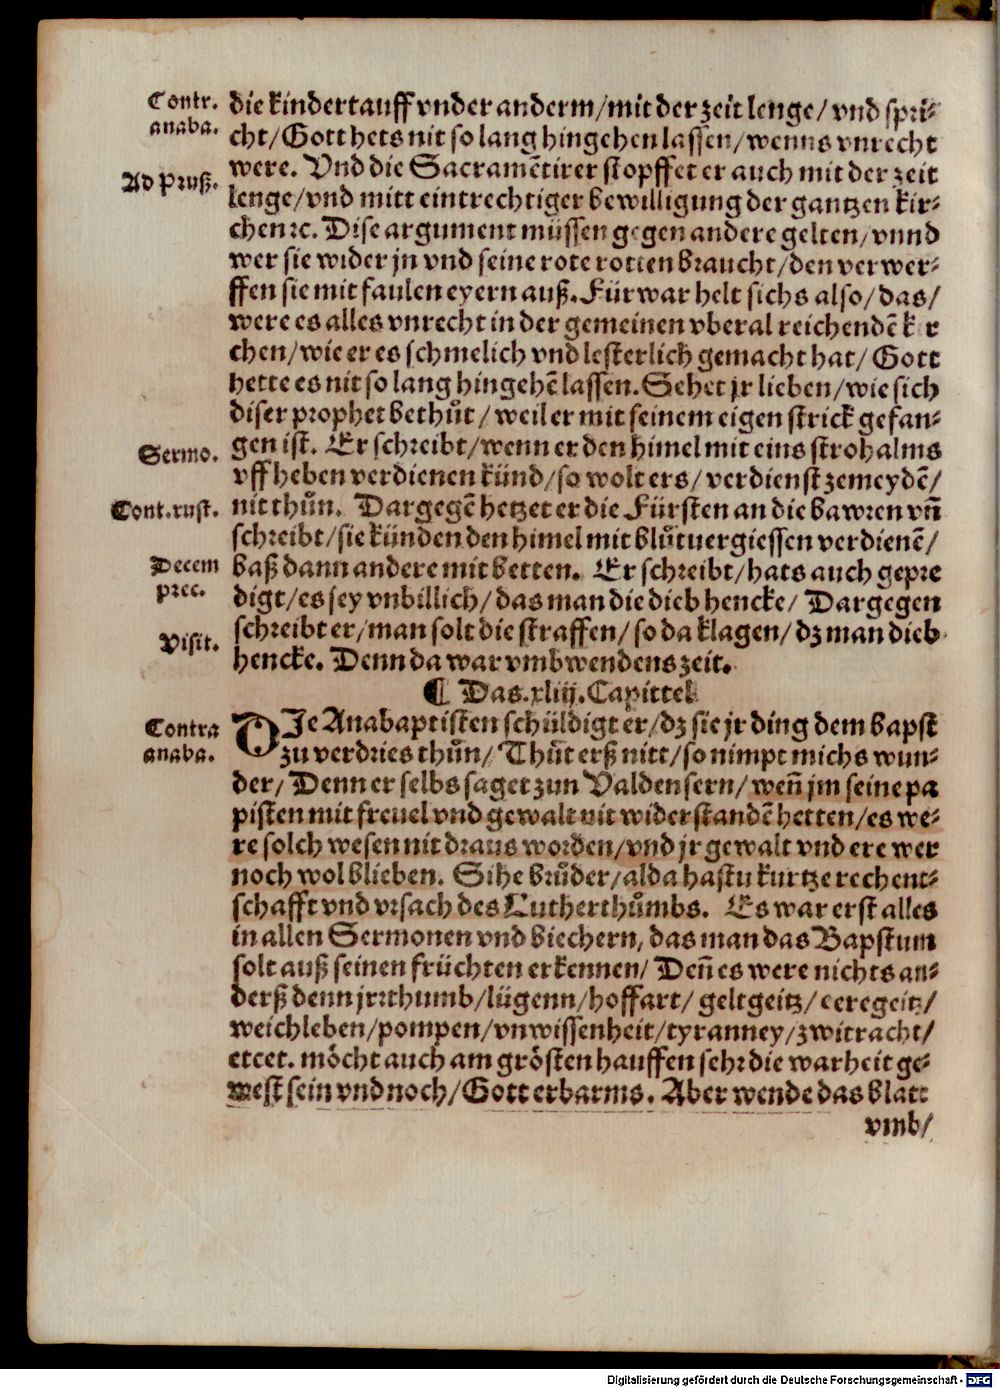 Contr.
anaba.
die kindertauff vnder anderm/mit der zeit lenge/ vnd spri⸗
cht/Gott hets nit so lang hingehen lassen/wenns vnrecht
Ad Pruß.
were. Vnd die Sacramētirer stopffet er auch mit der zeit
lenge/vnd mitt eintrechtiger bewilligung der gantzen kir⸗
chen ⁊c. Dise argument müssen gegen andere gelten/vnnd
wer sie wider jn vnd seine rote rotten braucht/den verwer⸗
ffen sie mit faulen eyern auß. Fürwar helt sichs also/das/
were es alles vnrecht in der gemeinen vberal reichendē k r
chen/wie er es schmelich vnd lesterlich gemacht hat/ Gott
hette es nit so lang hingehē lassen. Sehet jr lieben/wie sich
diser prophet bethůt/ weil er mit seinem eigen strick gefan⸗
Sermo.
gen ist. Er schreibt/wenn er den himel mit eins strohalms
vff heben verdienen künd/so wolt ers/ verdienst zemeydē/
Cont.rust.
nit thůn. Dargegē hetzet er die Fürsten an die bawren vn̄
schreibt/sie künden den himel mit blůtuergiessen verdienē/
Decem
prec.
baß dann andere mit betten. Er schreibt/hats auch gepre
digt/es sey vnbillich/das man die dieb hencke/ Dargegen
Visit.
schreibt er/man solt die straffen/so da klagen/dz man dieb
hencke. Denn da war vmbwendens zeit.
¶ Das.xliij.Capittel
Contra
anaba.
DJe Anabaptisten schüldigt er/dz sie jr ding dem bapst
zu verdries thůn/ Thůt erß nitt/so nimpt michs wun⸗
der/ Denn er selbs saget zun Valdensern/wen̄ jm seine pa
pisten mit freuel vnd gewalt nit widerstandē hetten/es we⸗
re solch wesen nit draus worden/vnd jr gewalt vnd ere wer
noch wol blieben. Sihe brůder/alda hastu kurtze rechent⸗
schafft vnd vrsach des Lutherthůmbs. Es war erst alles
in allen Sermonen vnd biechern, das man das Bapstum
solt auß seinen früchten erkennen/ Den̄ es were nichts an⸗
derß denn jrrthumb/lügenn/hoffart/ geltgeitz/eeregeitz/
weichleben/pompen/vnwissenheit/tyranney/zwitracht/
etcet. möcht auch am grösten hauffen sehr die warheit ge⸗
west sein vnd noch/Gott erbarms. Aber wende das blatt
vmb/
Digitalisierung gefördert durch die Deutsche Forschungsgemeinschaft - DFG